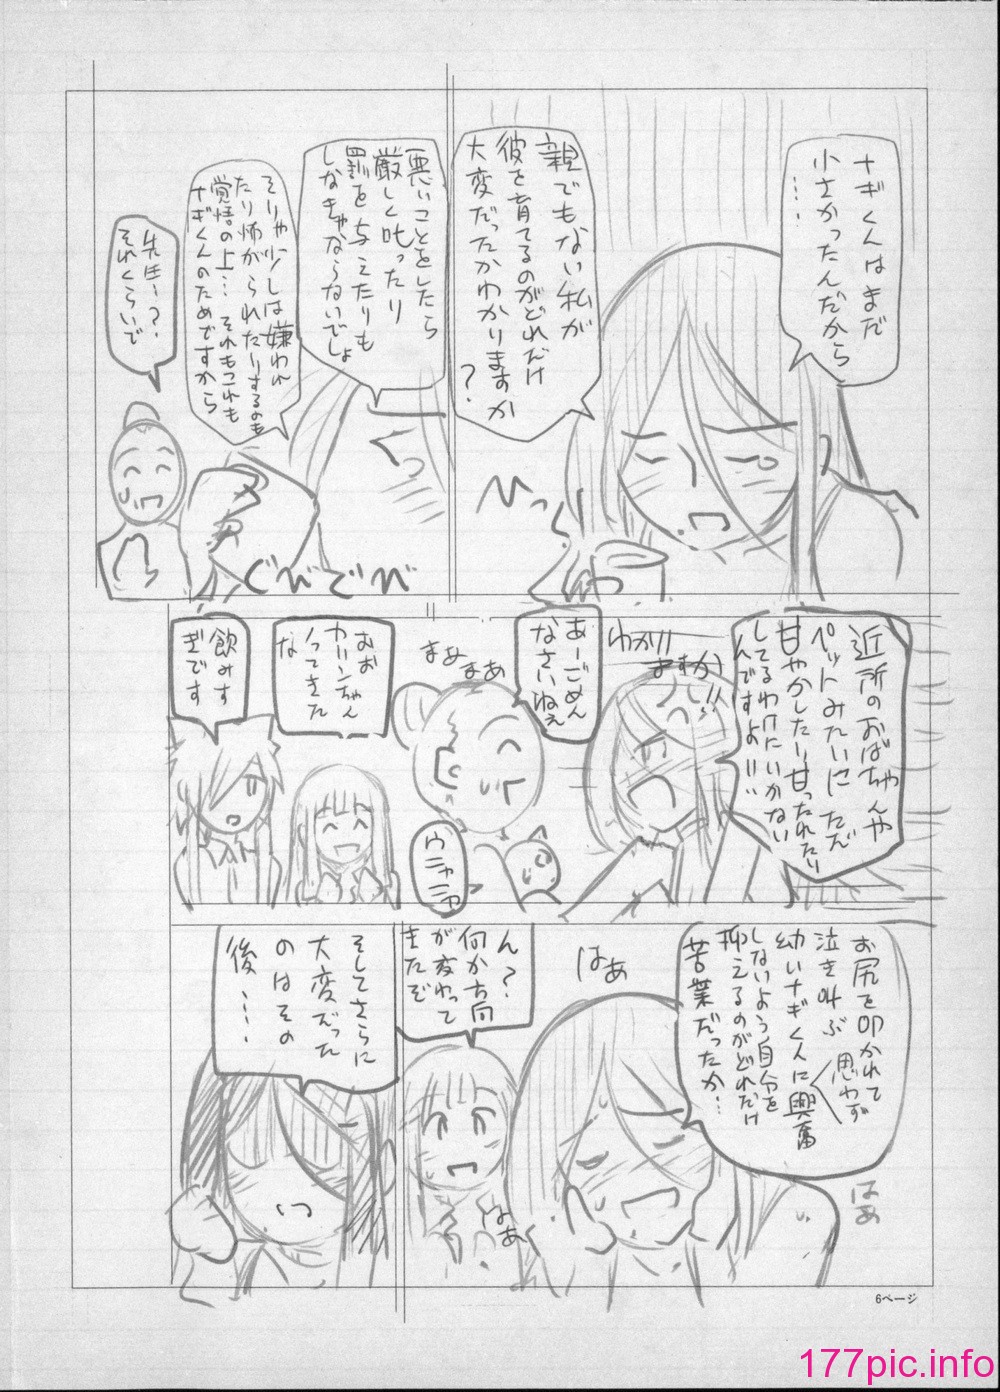 ナギくんはまだ
小さかったんだから
……
親でもない私が
彼を育てるのがどれだけ
大変だったかわかりますか
？
ひっ
悪いことをしたら
厳しく叱ったり
罰を与えたりも
しなきゃならないでしょ
そりゃ少しは嫌われ
たり怖がられたりするのも
覚悟の上… それもこれも
ナギくんのためですから
先生〜？
それくらいで
ぐびでび
近所のおばちゃんや
ペットみたいにただ
甘やかしたり甘ったれたり
してるわけにいかない
んですよ!!
わかり
ますか!!
あーごめん
なさいねぇ
まぁまぁ
ウニャニャ
おお
カリンちゃん
ノってきた
な
飲みす
ぎです
ん？
何か方向
が変わって
きたぞ
そしてさらに
大変だった
のはその
後……
6ページ
177pic.info